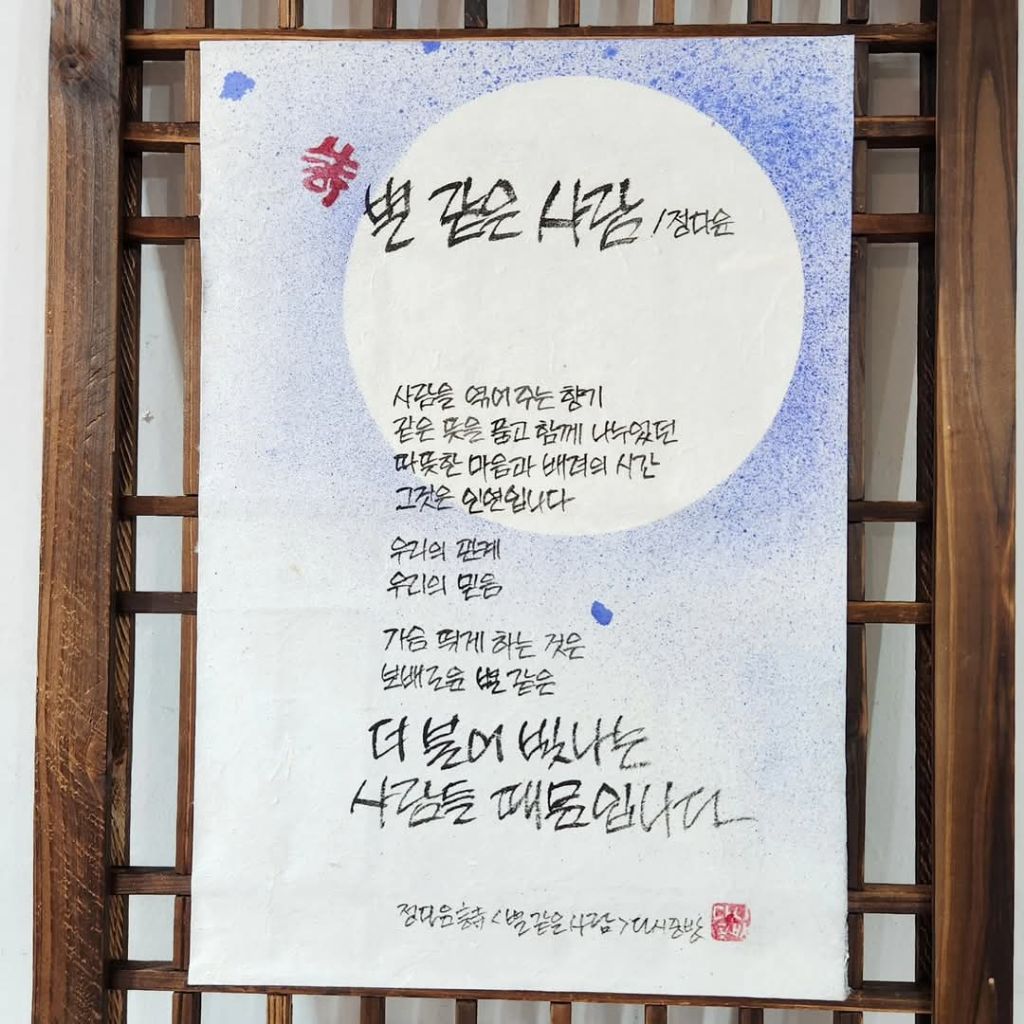 별 같은 사람 /정다운
사람을 엮어 주는 향기
같은 뜻을 품고 함께 나누었던
따뜻한 마음과 배려의 시간
그것은 인연입니다
우리의 관계
우리의 믿음
가슴 띄게 하는 것은
보배로운 별 같은
더불어 빛나는
사람들 때문입니다
정다운 詩 <별 같은 사람>